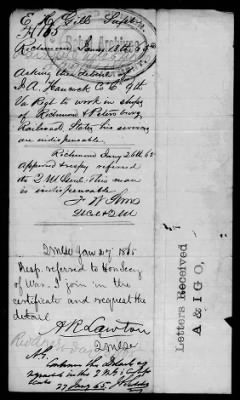 E. H. Gill Supt
H 185
Richmond Jany 18th 65
Asking the detail of
J. A. Hancock Co C 9th
Va Regt to work in shops
of Richmond & Petersburg
Railroad. States his services
are indispensable.
Richmond Jany 26th 65
Approved & respy referred
to Q M Genl. This man
is indispensable
F W Sims
Q M G O Jany 27 1865
Resp. referred to Hon Secy
of War. I join in the
certificate and request the
detail
A R Lawton
QMGen
A. G.
27 Jany 65
Letters Received
A & I G O,